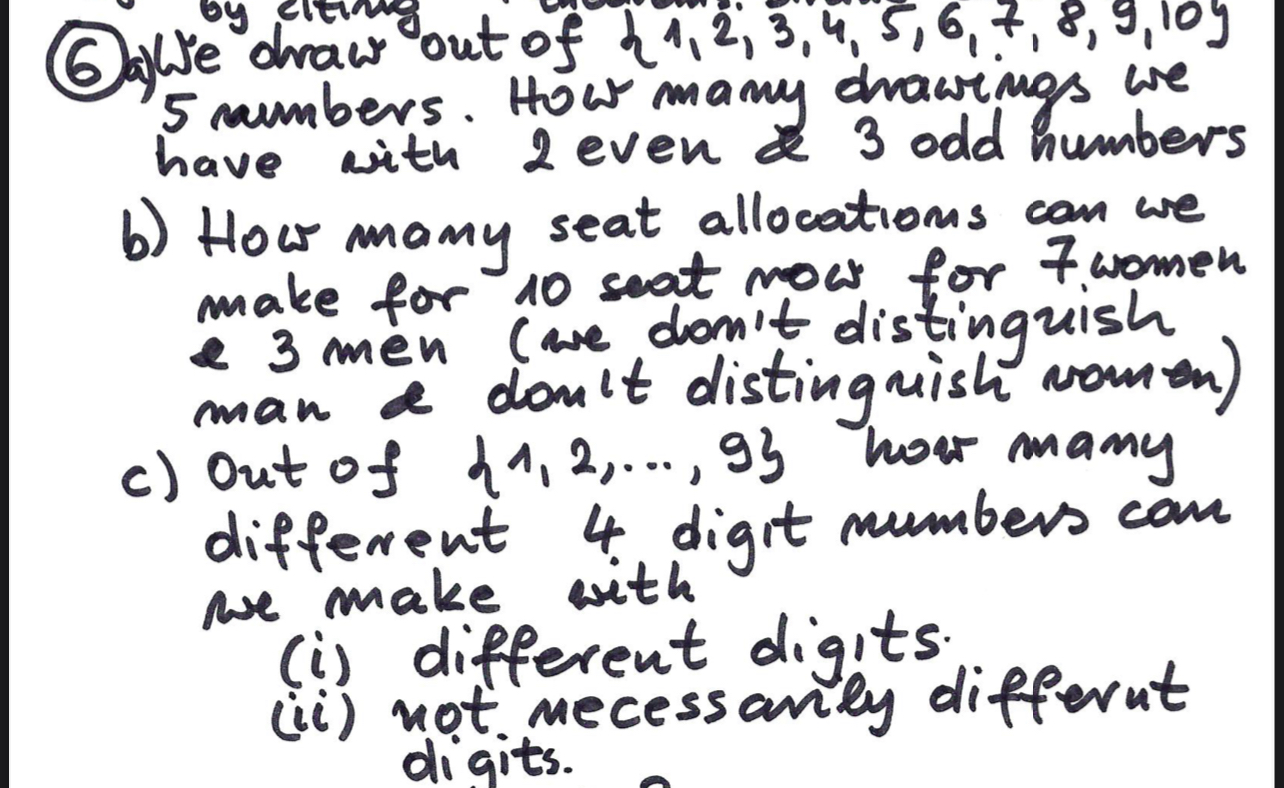 by citing
6 a) We draw out of {1, 2, 3, 4, 5, 6, 7, 8, 9, 10}
5 numbers. How many drawings we
have with 2 even & 3 odd numbers
b) How many seat allocations can we
make for 10 seat row for 7 women
& 3 men (we don't distinguish
man & don't distinguish women)
c) Out of {1, 2, ..., 9} how many
different 4 digit numbers can
we make with
(i) different digits.
(ii) not necessarily differut
digits.